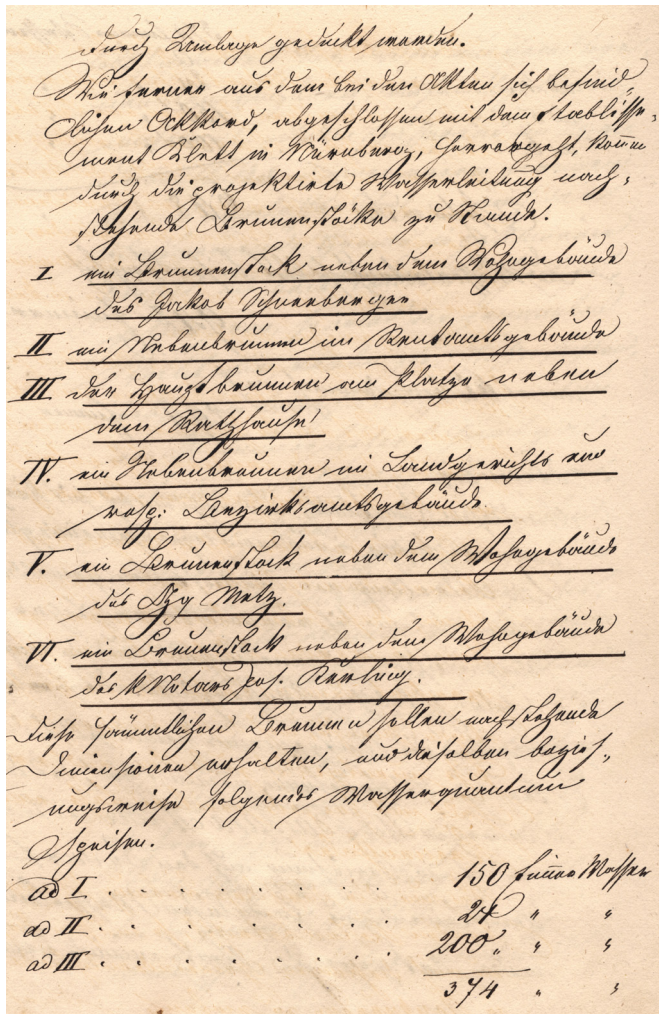 durch Umlage gedeckt werden.
Wie ferner aus dem bei den Akten sich befind„
lichen Akkord, abgeschlossen mit dem Etablisse„
ment Klett in Nürnberg, hervorgeht, kom̅en
durch die projektirte Wasserleitung nach„
stehende Brunenstöcke zu Stande.
I ein Brunnenstock neben dem Wohngebäude
des Jakob Schneeberger
II ein Nebenbrunnen im Rentamtsgebäude
III der Hauptbrunnen am Platze neben
dem Rathhause
IV. ein Nebenbrunnen im Landgerichts und
resp: Bezirksamtsgebäude.
V. ein Brunenstock neben dem Wohngebäude
des Metz.
VI. ein Brunenstock neben dem Wohngebäude
des k Notars Jos.
Diese sämmtlichen Brunnen sollen nachstehende
Dimensionen erhalten, und dieselben bezieh„
ungsweise folgendes Wasserquantum
speisen.
ad I . . . . . . . . . . 150 Eim̅er Wasser
ad II . . . . . . . . . . 24 „ „
ad III . . . . . . . . . . 200 „ „ „
374 „ „